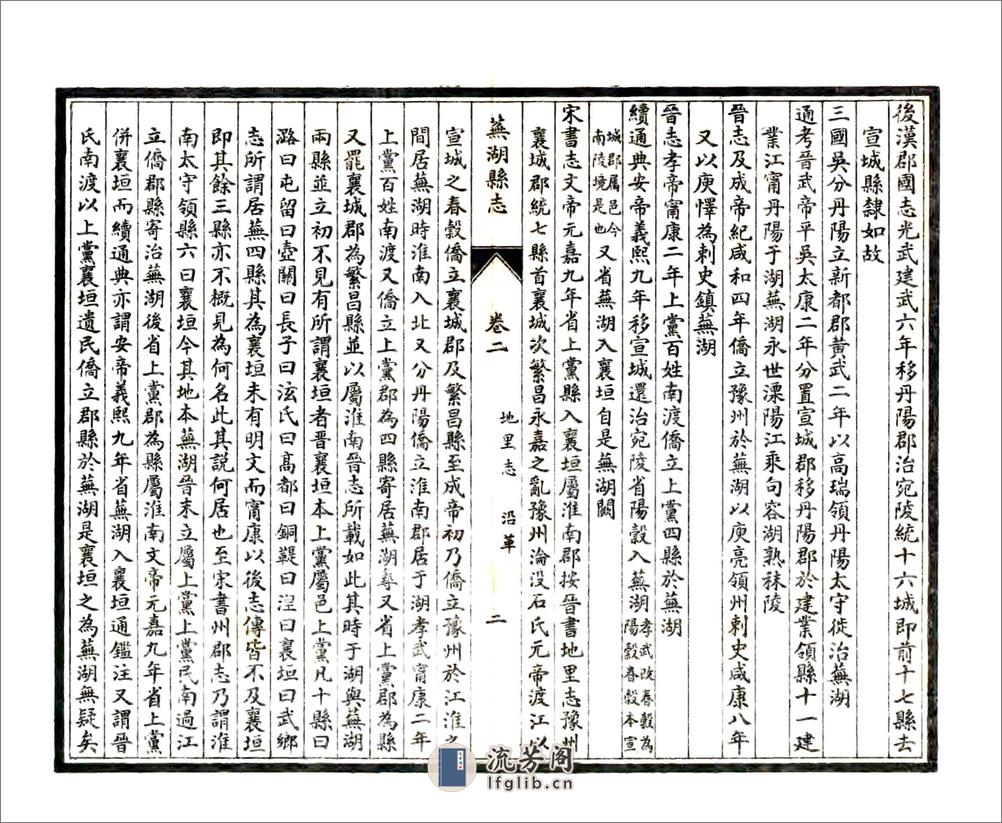 後漢郡國志光武建武六年移丹陽郡治宛陵統十六城即前十七縣去
宣城縣隸如故
三國吳分丹陽立新都郡黃武二年以高瑞領丹陽太守徙治蕪湖
通考晉武帝平吳太康二年分置宣城郡移丹陽郡於建業領縣十一建
業江甯丹陽于湖蕪湖永世溧陽江乘句容湖熟秣陵
晉志及成帝紀咸和四年僑立豫州於蕪湖以庾亮領州刺史咸康八年
又以庾懌為刺史鎮蕪湖
晉志孝帝甯康二年上黨百姓南渡僑立上黨四縣於蕪湖
續通典安帝義熙九年移宣城還治宛陵省陽穀入蕪湖孝武改春穀為陽穀春穀本宣
城郡屬邑今南陵境是也又省蕪湖入襄垣自是蕪湖闕
宋書志文帝元嘉九年省上黨縣入襄垣屬淮南郡按晉書地里志豫州
襄城郡統七縣首襄城次繁昌永嘉之亂豫州淪沒石氏元帝渡江以
蕪湖縣志
卷二
地里志 沿革
二
宣城之春穀僑立襄城郡及繁昌縣至成帝初乃僑立豫州於江淮之
間居蕪湖時淮南入北又分丹陽僑立淮南郡居于湖孝武甯康二年
上黨百姓南渡又僑立上黨郡為四縣寄居蕪湖尋又省上黨郡為縣
又罷襄城郡為繁昌縣並以屬淮南晉志所載如此其時于湖與蕪湖
兩縣並立初不見有所謂襄垣者晉襄垣本上黨屬邑上黨凡十縣曰
潞曰屯留曰壺關曰長子曰泫氏曰高都曰銅鞮曰涅曰襄垣曰武鄉
志所謂居蕪四縣其為襄垣未有明文而甯康以後志傳皆不及襄垣
即其餘三縣亦不概見為何名此其說何居也至宋書州郡志乃謂淮
南太守領縣六曰襄垣今其地本蕪湖晉末立屬上黨上黨民南過江
立僑郡縣寄治蕪湖後省上黨郡為縣屬淮南文帝元嘉九年省上黨
併襄垣而續通典亦謂安帝義熙九年省蕪湖入襄垣通鑑注又謂晉
氏南渡以上黨襄垣遺民僑立郡縣於蕪湖是襄垣之為蕪湖無疑矣
流芳阁
lfglib.cn